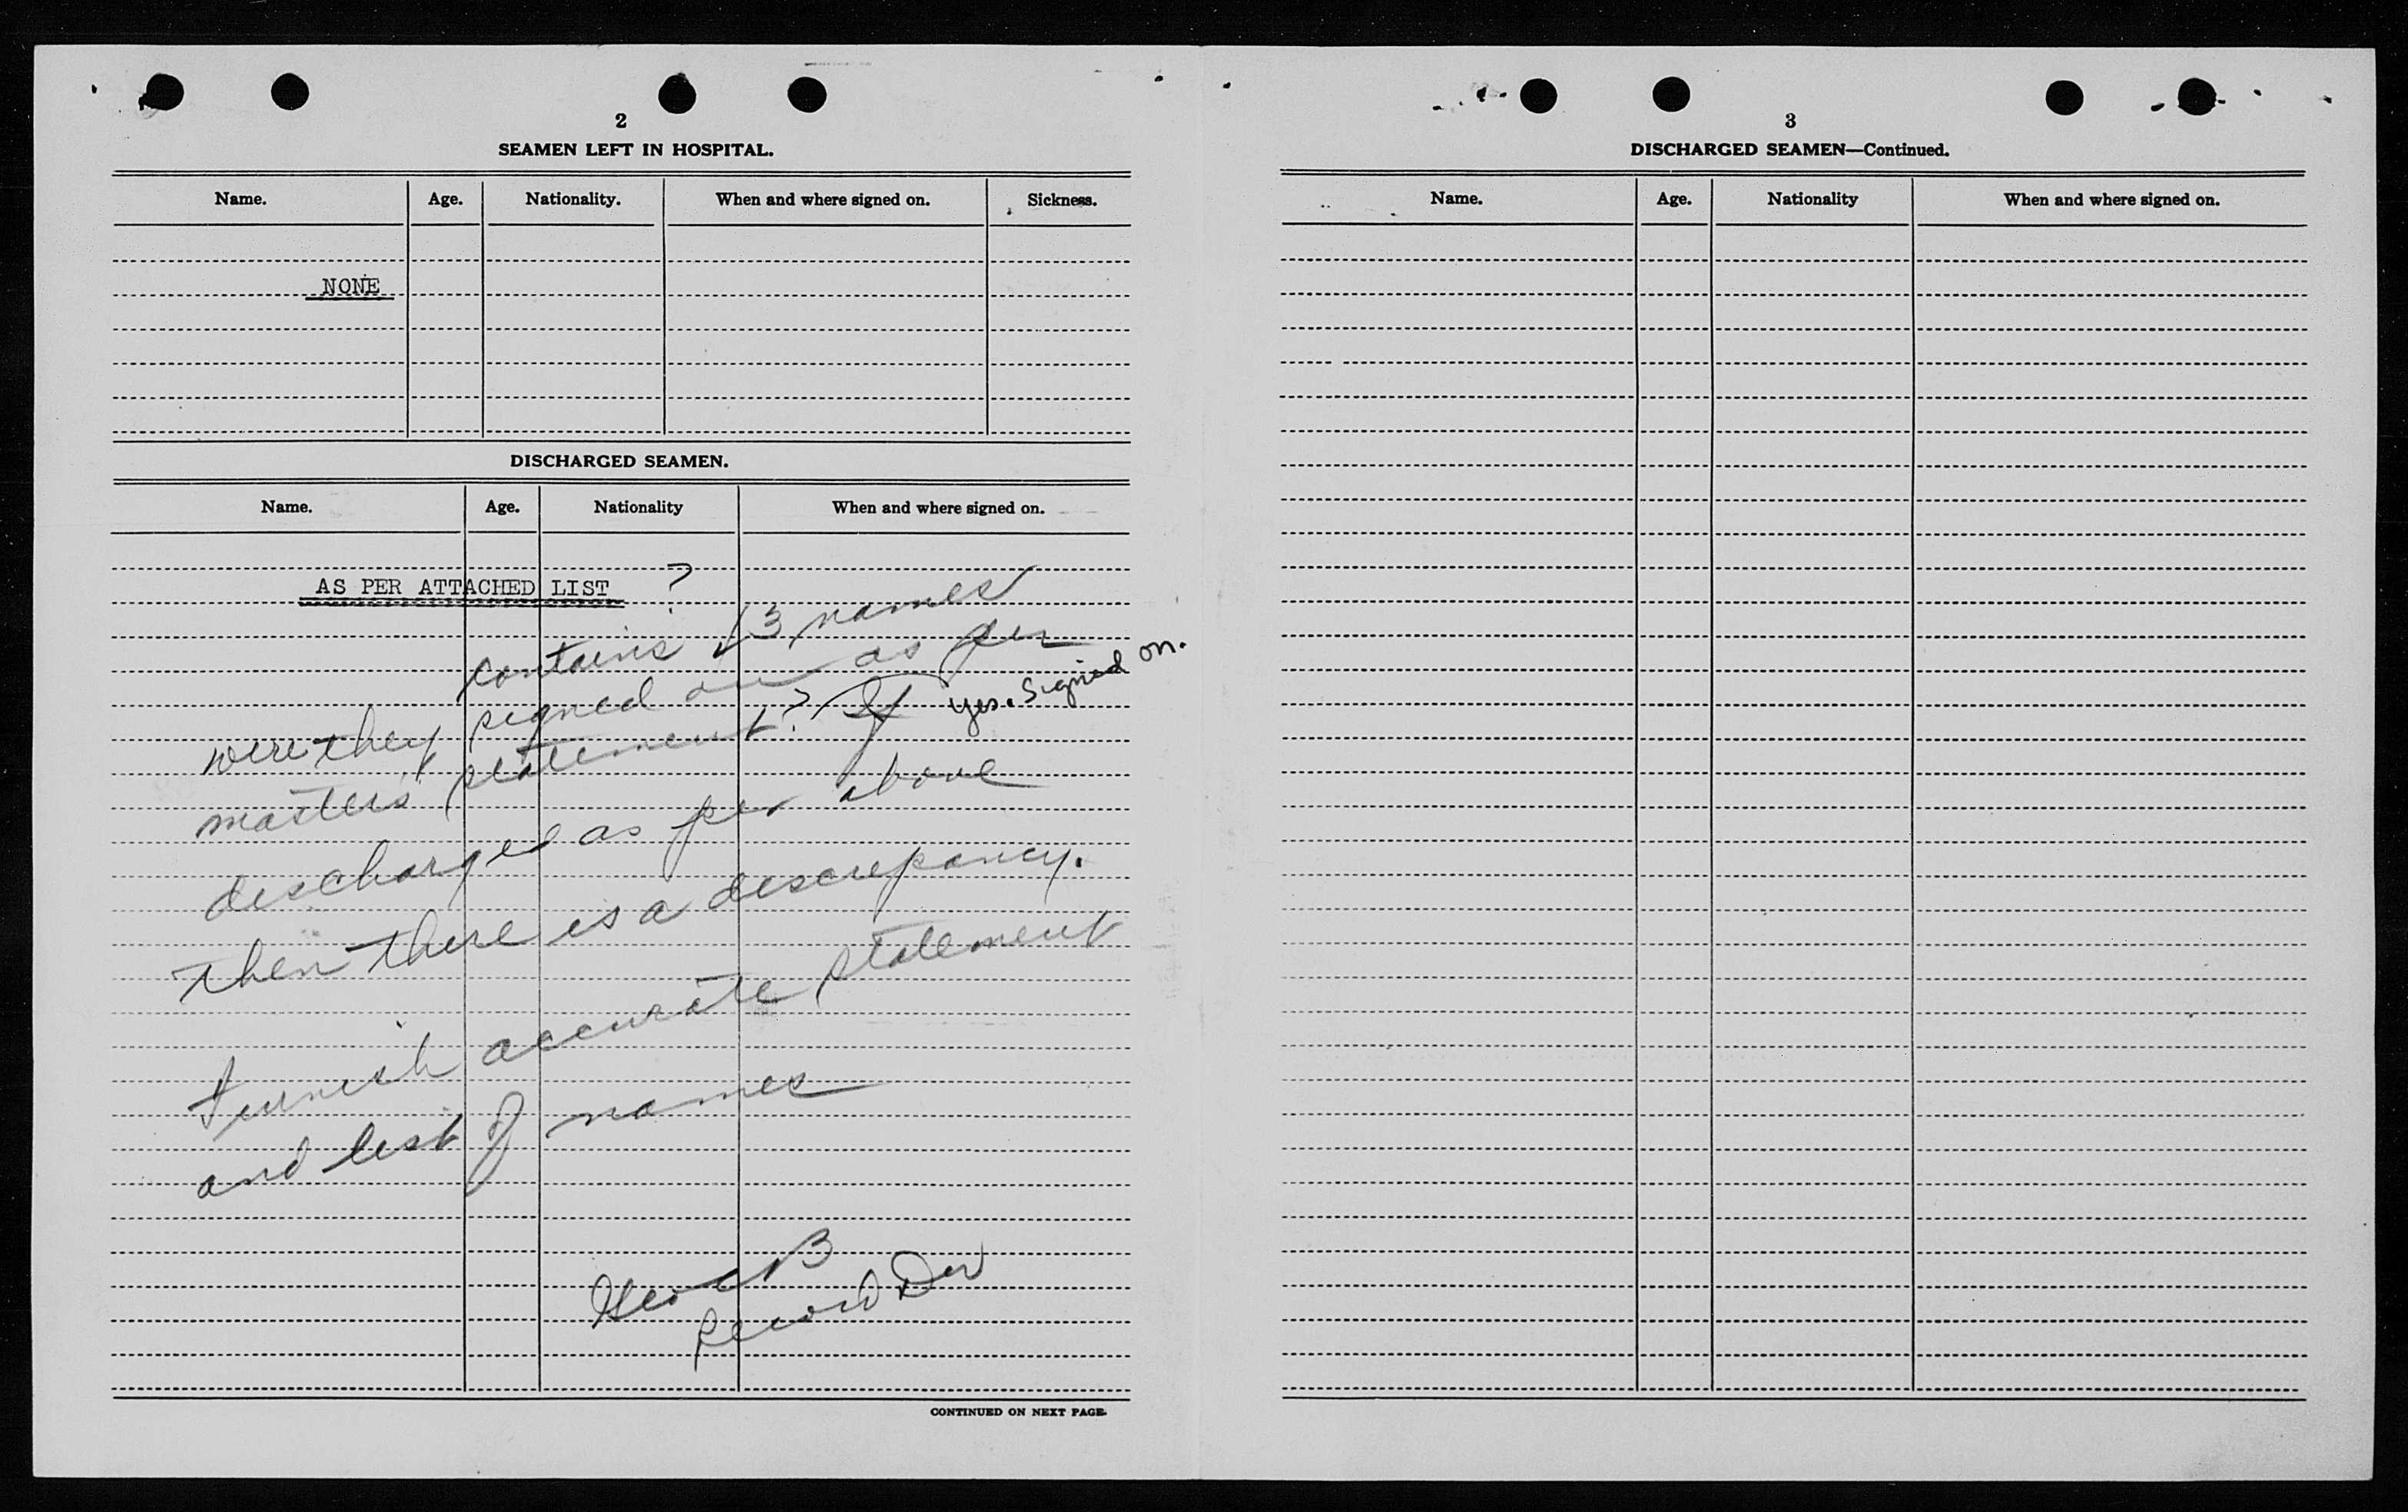 2
SEAMEN LEFT IN HOSPITAL.
Name. Age. Nationality. When and where signed on. Sickness.
NONE
DISCHARGED SEAMEN.
Name. Age. Nationality When and where signed on.
AS PER ATTACHED LIST ?
contains 13 names
were they signed on as per
masters statement? If yes. Signed on.
discharged as per above
then there is a discrepancy.
Furnish accurate statement
and list of names
Record Div
CONTINUED ON NEXT PAGE.
3
DISCHARGED SEAMEN—Continued.
Name. Age. Nationality When and where signed on.